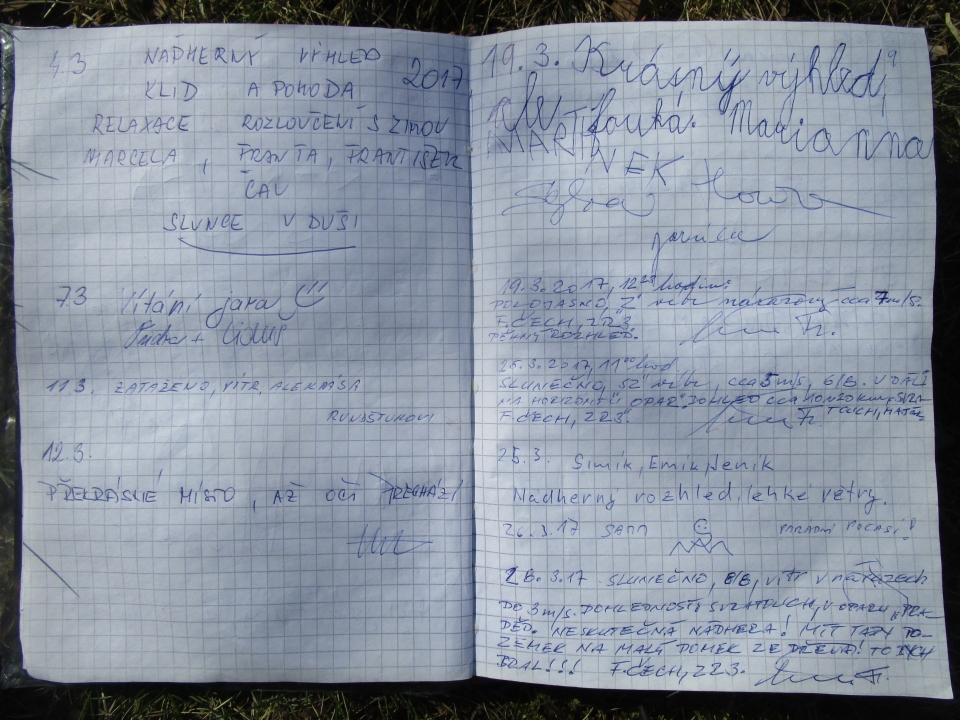 4.3 NÁDHERNÝ VÝHLED 2017
KLID A POHODA
RELAXACE ROZLOUČENÍ S ZIMOU
MARCELA, FRANTA, FRANTIŠEK
ČAU
SLUNCE V DUŠI
7.3 Vítání jara
11.3. ZATAŽENO, VÍTR, ALE KRÁSA
12.3.
PŘEKRÁSNÉ MÍSTO, AŽ OČI PŘECHÁZÍ
19.3. Krásný výhled,
ale fouká. Marianna
MARTI
NEK
19.3.2017, 12 hodin:
POLOJASNO, vítr nárazový cca 7 m/s.
F. ČECH, ZR3.
PĚKNÝ ROZHLED.
25.3.2017, 11 hod
SLUNEČNO, SZ vítr, cca 5 m/s, 6/8. V DÁLI
NA HORIZONTĚ OPAR. DOHLED CCA
F. ČECH, ZR3.
25.3. Simík, Emík, Jeník
Nádherný rozhled, lehké větry.
26.3.17 SAMM PARÁDNÍ POČASÍ!
28.3.17 SLUNEČNO, 8/8, vítr v nárazech
DO 3 m/s. DOHLEDNOST SVRATOUCH, V OPARU "PRA-
DĚD. NESKUTEČNÁ NÁDHERA! MÍT TADY PO-
ZEMEK NA MALÝ DOMEK ZE DŘEVA! TO BYCH
BRAL!!! F. ČECH, ZR3.